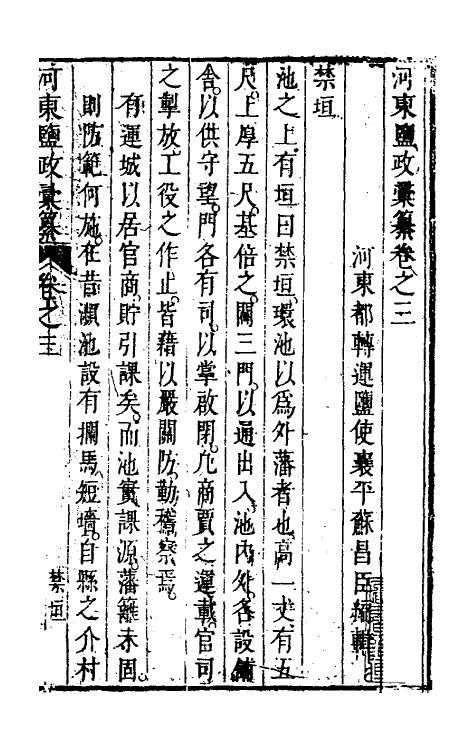 河東鹽政彙纂卷之三
河東都轉運鹽使襄平蘇昌臣編輯
禁垣
池之上有垣曰禁垣環池以爲外藩者也高一丈有五
尺上厚五尺基倍之闢三門以通出入池内外各設鋪
舍以供守望門各有司以掌啟閉凡商賈之運載官司
之掣放工役之作止皆藉以嚴關防勤稽察焉
有運城以居官商貯引課矣而池實課源藩籬未固
則防範何施在昔瀕池設有攔馬短墻自縣之介村
河東鹽政彙纂 卷之三 禁垣